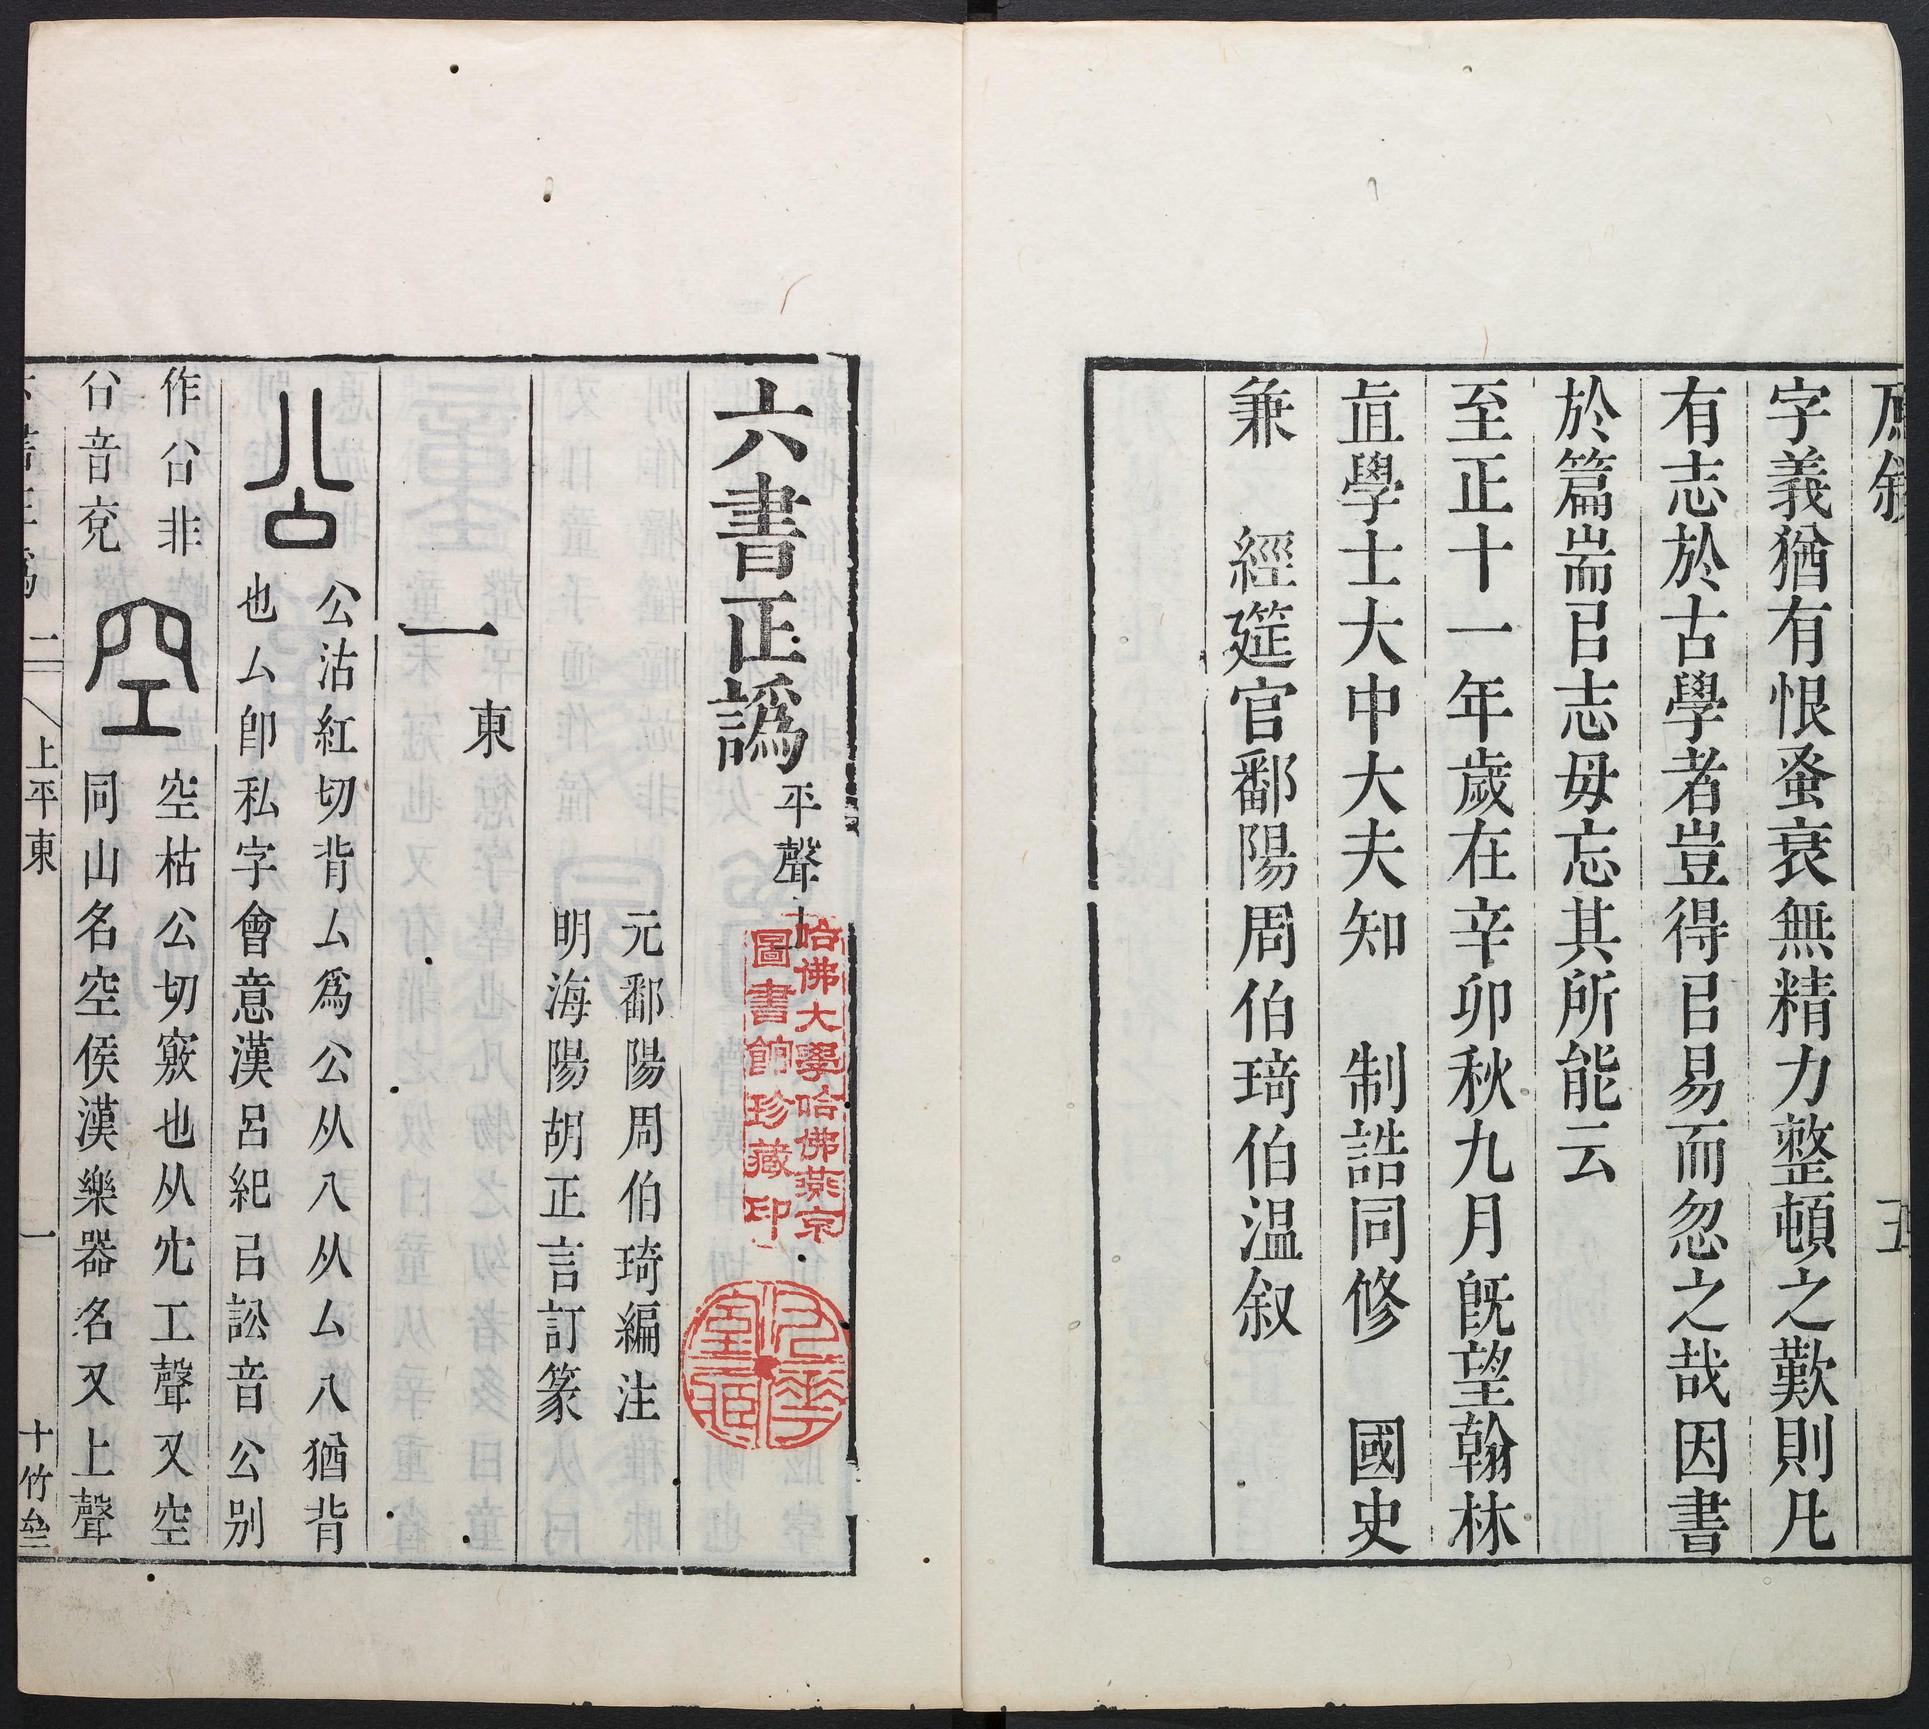 原叙
五
字義猶有恨蚤衰無精力整頓之歎則凡
有志於古學者豈得㠯易而忽之哉因書
於篇耑㠯志毋忘其所能云
至正十一年歲在辛卯秋九月旣望翰林
直學士大中大夫知　制誥同修　國史
兼　經筵官鄱陽周伯琦伯温叙
六書正譌平聲上
哈佛大學哈佛燕京
圖書館珍藏印
元鄱陽周伯琦編注
明海陽胡正言訂篆
一東
公 公沽紅切背厶爲公从八从厶八猶背
也厶卽私字會意漢呂紀㠯訟音公別
作㕣非
㕣音兖
空 空枯公切竅也从穴工聲又空
同山名空侯漢樂器名又上聲
六書正譌
上平東
一
十竹